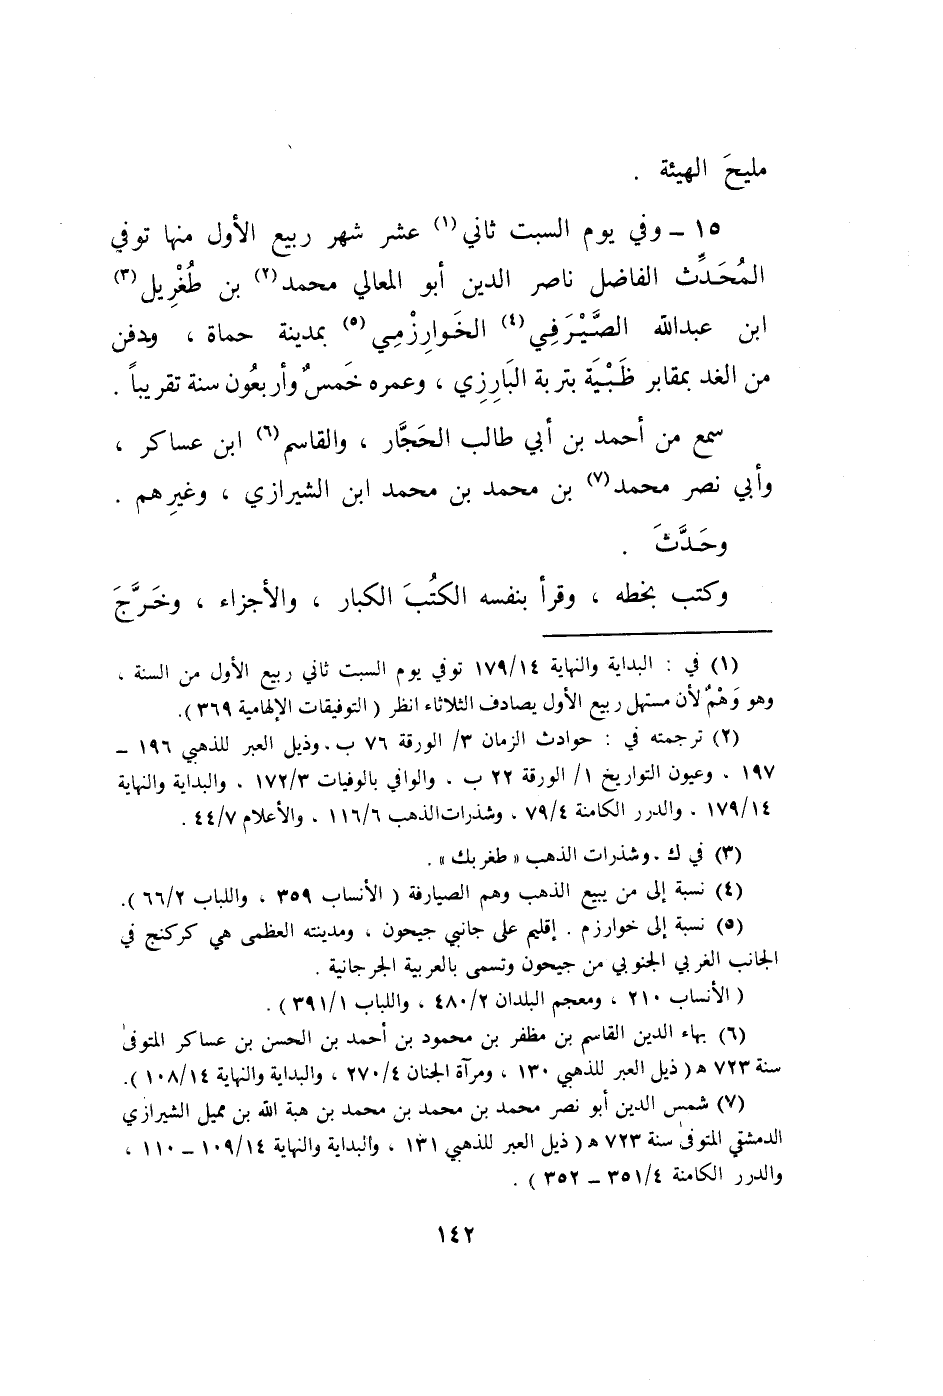 مليحَ الهيئة .
١٥ ــ وفي يوم السبت ثاني(١) عشر شهر ربيع الأول منها توفي
المُحَدِّث الفاضل ناصر الدين أبو المعالي محمد(٢) بن طُغْرِيل(٣)
ابن عبدالله الصَّيْرَفي(٤) الخَوارِزْمِي(٥) بمدينة حماة ، ودفن
من الغد بمقابر ظَبْيَة بتربة البَارِزِي ، وعمره خَمسٌ وأربعُون سنة تقريباً .
سمع من أحمد بن أبي طالب الحَجَّار ، والقاسم(٦) ابن عساكر ،
وأبي نصر محمد(٧) بن محمد بن محمد ابن الشيرازي ، وغيرِهم .
وحَدَّثَ .
وكتب بخطه ، وقرأ بنفسه الكتُبَ الكبار ، والأجزاء ، وخَرَّجَ
(١) في : البداية والنهاية ١٧٩/١٤ توفي يوم السبت ثاني ربيع الأول من السنة ،
وهو وَهْمٌ لأن مستهل ربيع الأول يصادف الثلاثاء انظر ( التوفيقات الإلهامية ٣٦٩ ).
(٢) ترجمته في : حوادث الزمان ٣/ الورقة ٧٦ ب . وذيل العبر للذهبي ١٩٦ ــ
١٩٧ . وعيون التواريخ ١/ الورقة ٢٢ ب . والوافي بالوفيات ١٧٢/٣ . والبداية والنهاية
١٧٩/١٤ . والدرر الكامنة ٧٩/٤ . وشذرات الذهب ١١٦/٦ . والأعلام ٤٤/٧ .
(٣) في ك . وشذرات الذهب « طغربك » .
(٤) نسبة إلى من يبيع الذهب وهم الصيارفة ( الأنساب ٣٥٩ ، واللباب ٦٦/٢ ).
(٥) نسبة إلى خوارزم . إقليم على جانبي جيحون ، ومدينته العظمى هي كركنج في
الجانب الغربي الجنوبي من جيحون وتسمى بالعربية الجرجانية .
( الأنساب ٢١٠ ، ومعجم البلدان ٤٨٠/٢ ، واللباب ٣٩١/١ ) .
(٦) بهاء الدين القاسم بن مظفر بن محمود بن أحمد بن الحسن بن عساكر المتوفىٰ
سنة ٧٢٣ هـ ( ذيل العبر للذهبي ١٣٠ ، ومرآة الجنان ٢٧٠/٤ ، والبداية والنهاية ١٠٨/١٤ ).
(٧) شمس الدين أبو نصر محمد بن محمد بن محمد بن هبة الله بن مميل الشيرازي
الدمشقي المتوفىٰ سنة ٧٢٣ هـ ( ذيل العبر للذهبي ١٣١ ، والبداية والنهاية ١٠٩/١٤ ــ ١١٠ ،
والدرر الكامنة ٣٥١/٤ ــ ٣٥٢ ) .
١٤٢